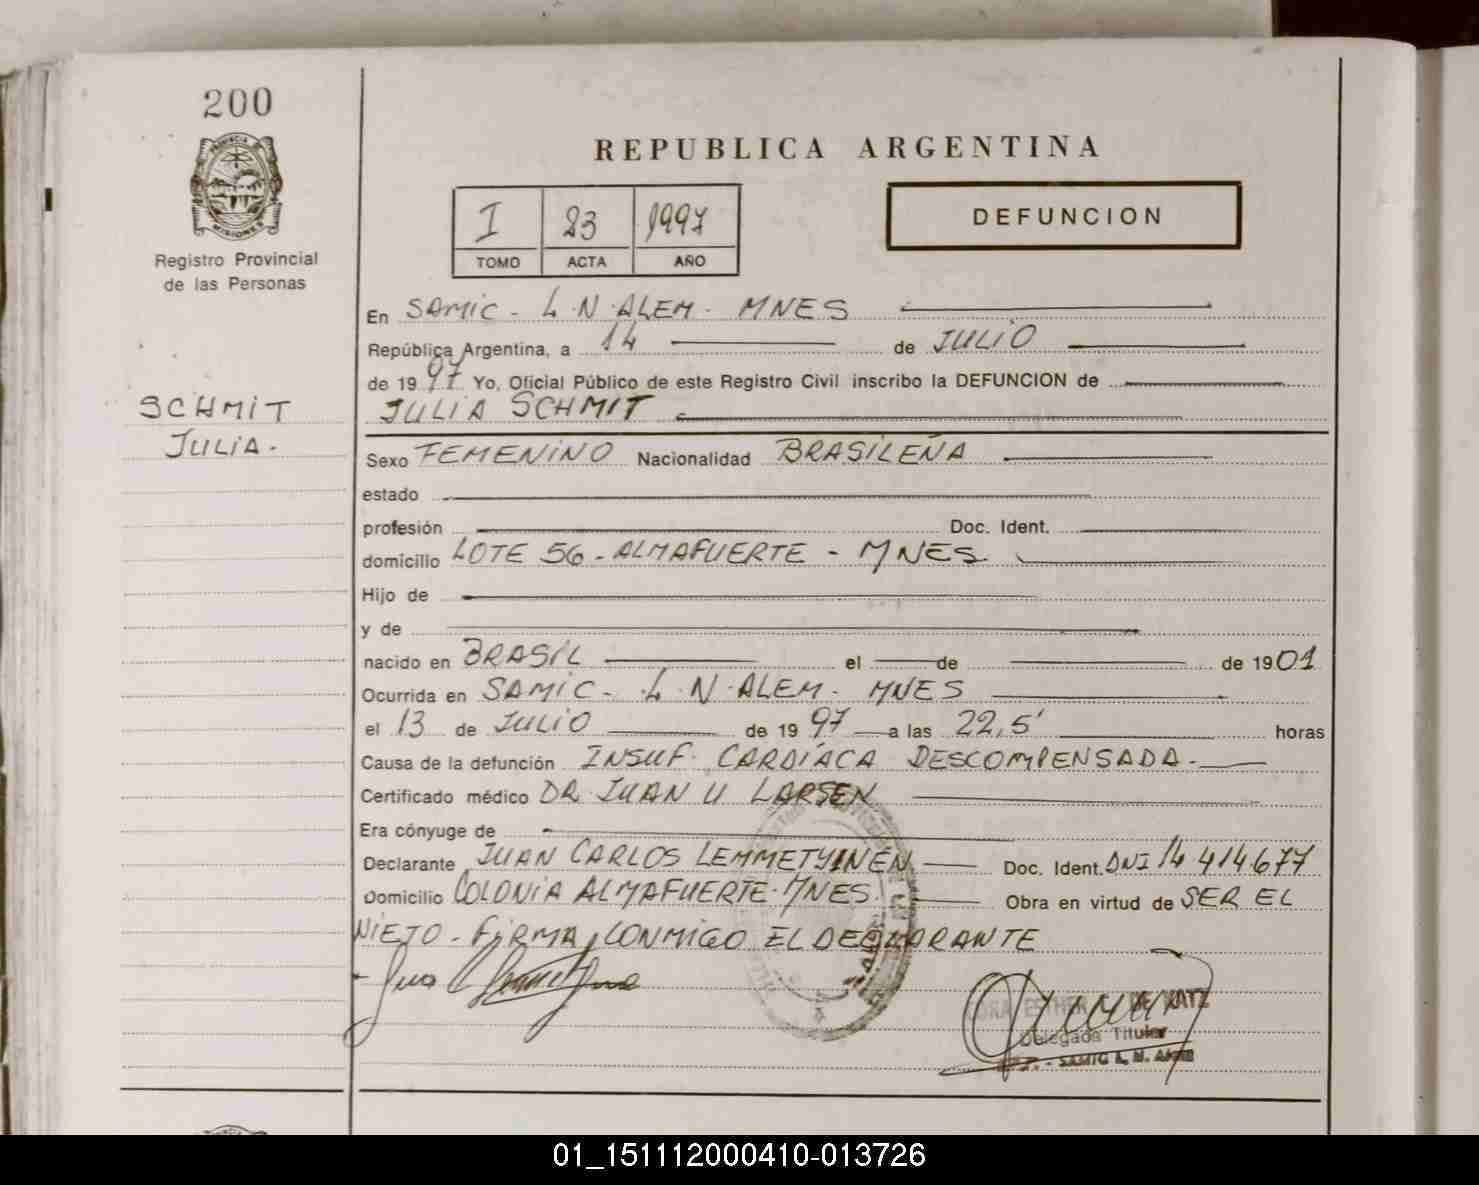 200
PROVINCIA DE
MISIONES
Registro Provincial
de las Personas
SCHMIT
JULIA.
REPUBLICA ARGENTINA
I 23 1997
TOMO ACTA AÑO
DEFUNCION
En SAMIC - L.N.ALEM. MNES
República Argentina, a 14 de JULIO
de 1997 Yo, Oficial Público de este Registro Civil inscribo la DEFUNCION de
JULIA SCHMIT
Sexo FEMENINO Nacionalidad BRASILEÑA
estado
profesión Doc. Ident.
domicilio LOTE 56 - ALMAFUERTE - MNES
Hijo de
y de
nacido en BRASIL el de de 1901
Ocurrida en SAMIC - L.N.ALEM. MNES
el 13 de JULIO de 1997 a las 22,5' horas
Causa de la defunción INSUF. CARDÍACA DESCOMPENSADA.
Certificado médico DR. JUAN U LARSEN
Era cónyuge de
Declarante JUAN CARLOS LEMMETYINEN Doc. Ident. DNI 14 414677
Domicilio COLONIA ALMAFUERTE. MNES. Obra en virtud de SER EL
NIETO - FIRMA CONMIGO EL DECLARANTE
ESTHER DE KATZ
Delegada Titular
- SAMIC L. N. Alem
01_151112000410-013726